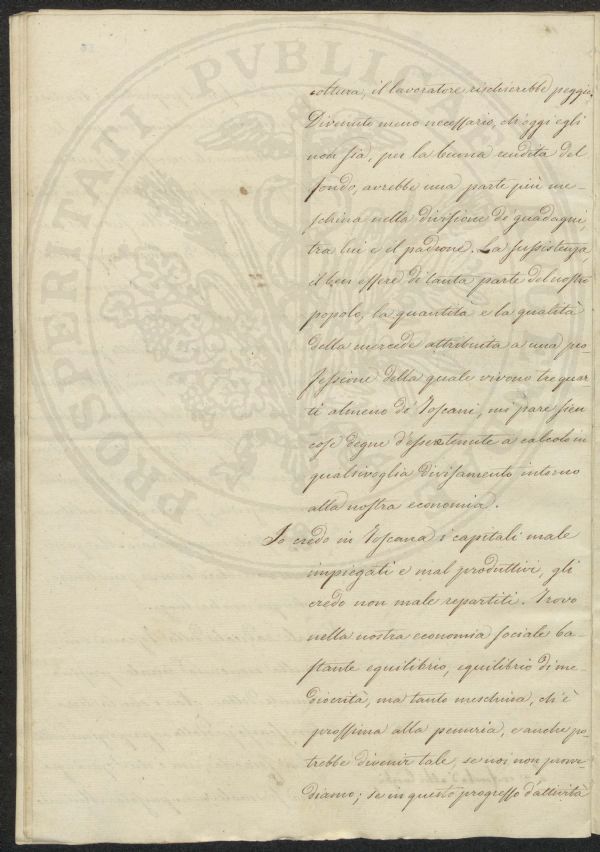 PROSPERITATI PVBLICAE
coltura, il lavoratore risedirebbe peggio.
Divenuto meno necessario, ch'oggi egli
non sia, per la buona rendita del
fondo, avrebbe una parte più me-
schina nella divisione de' guadagni,
tra lui e il padrone. La sussistenza,
il ben essere di tanta parte del nostro
popolo, la quantità e la qualità
della mercede attribuita a una pro-
fessione della quale vivono tre quar-
ti almeno de' Toscani, mi pare sien
cose degne d'esser tenute a calcolo in
qualsivoglia divisamento intorno
alla nostra economia.
Io credo in Toscana i capitali male
impiegati e mal produttivi, gli
credo non male repartiti. Trovo
nella nostra economia sociale ba-
stante equilibrio, equilibrio di me-
diocrità, ma tanto meschina, ch'è
prossima alla penuria, e anche po-
trebbe divenir tale, se noi non provve-
diamo; se in questo progresso d'attività